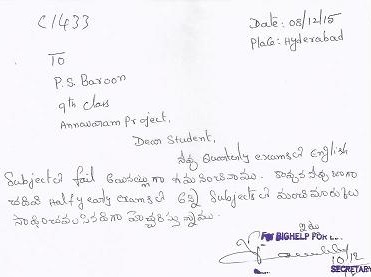 C1433
Date: 08/12/15
Place: Hyderabad
To
P.S. Baroon
9th class
Annavaram Project,
Dear Student,
నీవు Quarterly exams లో English
Subject లో fail అయినట్లుగా గమనించినాము. కావున నీవు బాగా
చదివి Half yearly exams లో అన్ని Subjects లో మంచి మార్కులు
సాధించవలసినదిగా హెచ్చరిస్తున్నాము.
ఇట్లు
For BIGHELP FOR
10/12
SECRETARY